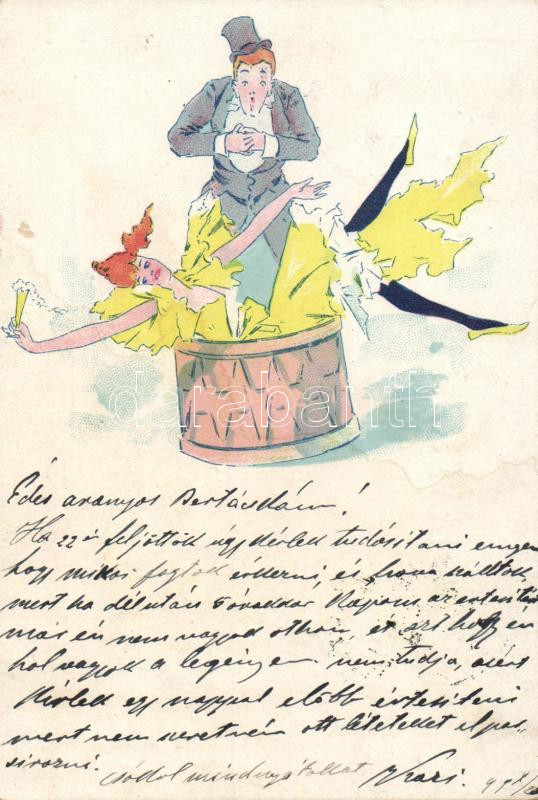 darabanth
Édes aranyos Bertácskám!
Ha 22 én feljöttök úgy kérlek tudósitani engem
hogy mikor fogtok érkezni, és hova szálltok,
mert ha délután 5 órakkor kapom az értesitést
mar én nem vagyok othon, és azt hogy én
hol vagyok a legényem nem tudja, azért
kérlek egy nappal előbb értesiteni
mert nem szeretném ott léteteket elpas„
sirozni.
csókol mindnyájatokat
99